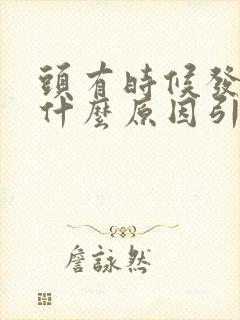 頭有時候發
什麼原因引
詹詠然